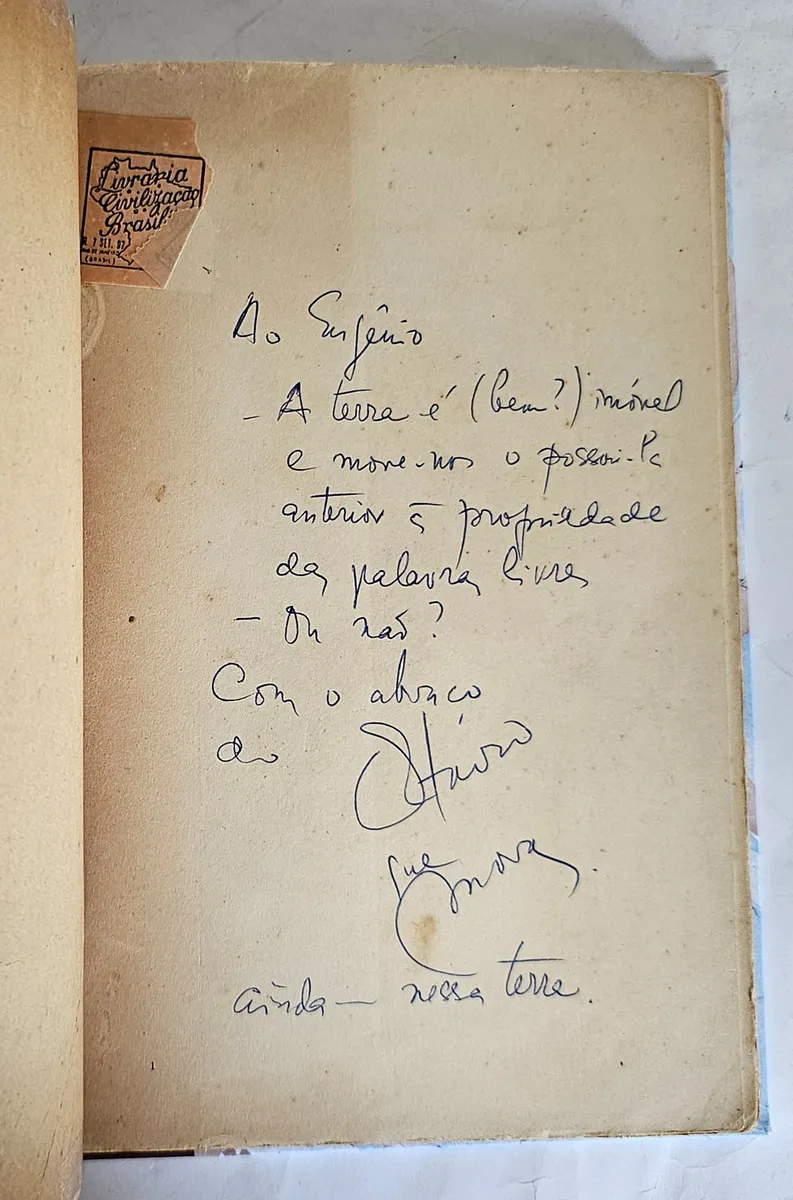 Livraria
Civilização
Brasil
7 SET. 87
(BRASIL)
Ao Eugênio
- A terra é (bem?) imóvel
e move-nos o possuí-la
anterior à propriedade
das palavras livres
- Ou não?
Com o abraço
do Otávio
que mora
ainda — nessa terra.
1